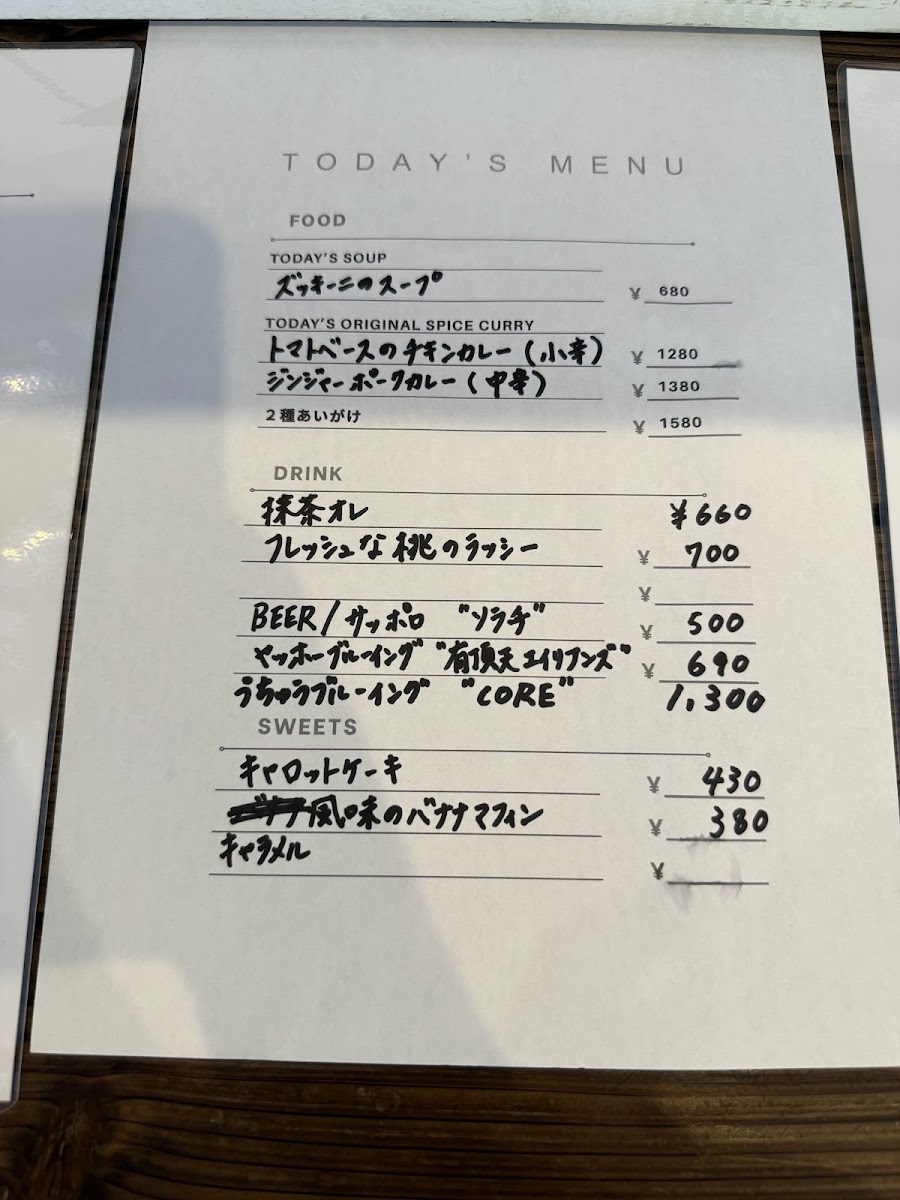 TODAY'S MENU
FOOD
TODAY'S SOUP
ズッキーニのスープ ¥ 680
TODAY'S ORIGINAL SPICE CURRY
トマトベースのチキンカレー(小辛) ¥ 1280
ジンジャーポークカレー(中辛) ¥ 1380
2種あいがけ ¥ 1580
DRINK
抹茶オレ ¥660
フレッシュな桃のラッシー ¥ 700
¥
BEER/サッポロ "ソラチ" ¥ 500
ヤッホーブルーイング "有頂天エイリアンズ" ¥ 690
うちゅうブルーイング "CORE" 1,300
SWEETS
キャロットケーキ ¥ 430
風味のバナナマフィン ¥ 380
キャラメル ¥